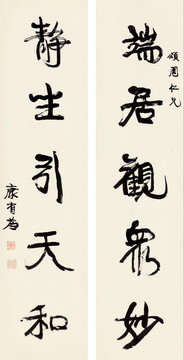 端居觀眾妙
頌周仁兄
靜生引天和
康有為